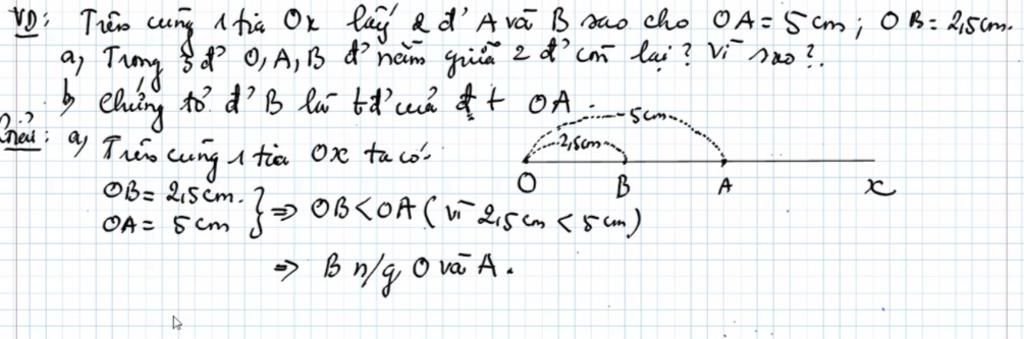 VD: Trên cùng 1 tia Ox lấy 2 đ' A và B sao cho OA = 5 cm; OB = 2,5 cm.
a, Trong 3 đ' O, A, B đ' nằm giữa 2 đ' còn lại? Vì sao?.
b, Chứng tỏ đ' B là tđ' của đt OA.
Giải: a, Trên cùng 1 tia Ox ta có:
OB = 2,5 cm.
OA = 5 cm } => OB < OA (vì 2,5 cm < 5 cm)
=> B n/g O và A.
5cm
2,5cm
O B A x